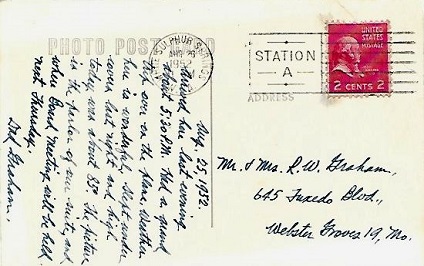 PHOTO POST CARD
SULPHUR SPRINGS
AUG 26
1952
STATION
A
UNITED
STATES
POSTAGE
2 CENTS 2
ADDRESS
Aug. 25, 1952.
Arrived here last evening
about 5:30 P.M. Had a grand
trip over on the plane. Weather
here is wonderful, slept under
covers last night and high
today was about 85°. The picture
is the parlor of our suite, and
where Board meeting will be held
next Thursday.
Dad Graham.
Mr. & Mrs. R. W. Graham,
645 Tuxedo Blvd.,
Webster Groves 19, Mo.